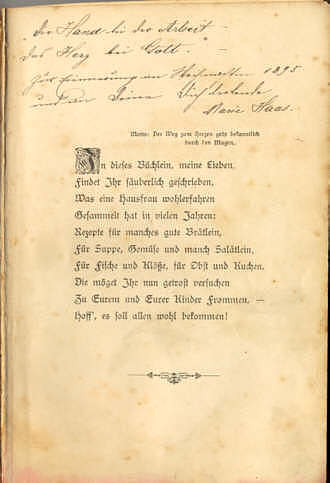 "Die Hand bei der Arbeit –
das Herz bei Gott."
Zur Erinnerung an Weihnachten 1895
und an Deine Dich liebende
Marie Haas.
Motto: Der Weg zum Herzen geht bekanntlich
durch den Magen.
In dieses Büchlein, meine Lieben,
Findet Ihr säuberlich geschrieben,
Was eine Hausfrau wohlerfahren
Gesammelt hat in vielen Jahren:
Rezepte für manches gute Brätlein,
Für Suppe, Gemüse und manch Salätlein,
Für Fische und Klöße, für Obst und Kuchen.
Die möget Ihr nun getrost versuchen
Zu Eurem und Eurer Kinder Frommen. –
Hoff', es soll allen wohl bekommen!